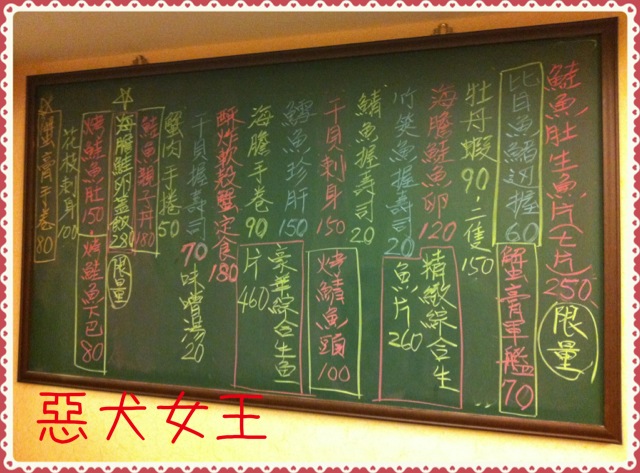 鮭魚肚生魚片(七片)250 限量
比目魚鰭邊握60
蟹膏軍艦70
牡丹蝦90.二隻150
海膽鮭魚卵120
精緻綜合生魚片260
竹筴魚握壽司20
鯖魚握壽司20
烤鯖魚頭100
干貝刺身150
鱈魚珍肝150
豪華綜合生魚片460
海膽手卷90
酥炸軟殼蟹定食180
干貝握壽司70
味噌湯20
蟹肉手捲50
鮭魚親子丼180
海膽鮭卵蓋飯280 限量
烤鮭魚肚150
烤鮭魚下巴80
花枝刺身100
蟹膏手卷80
惡犬女王